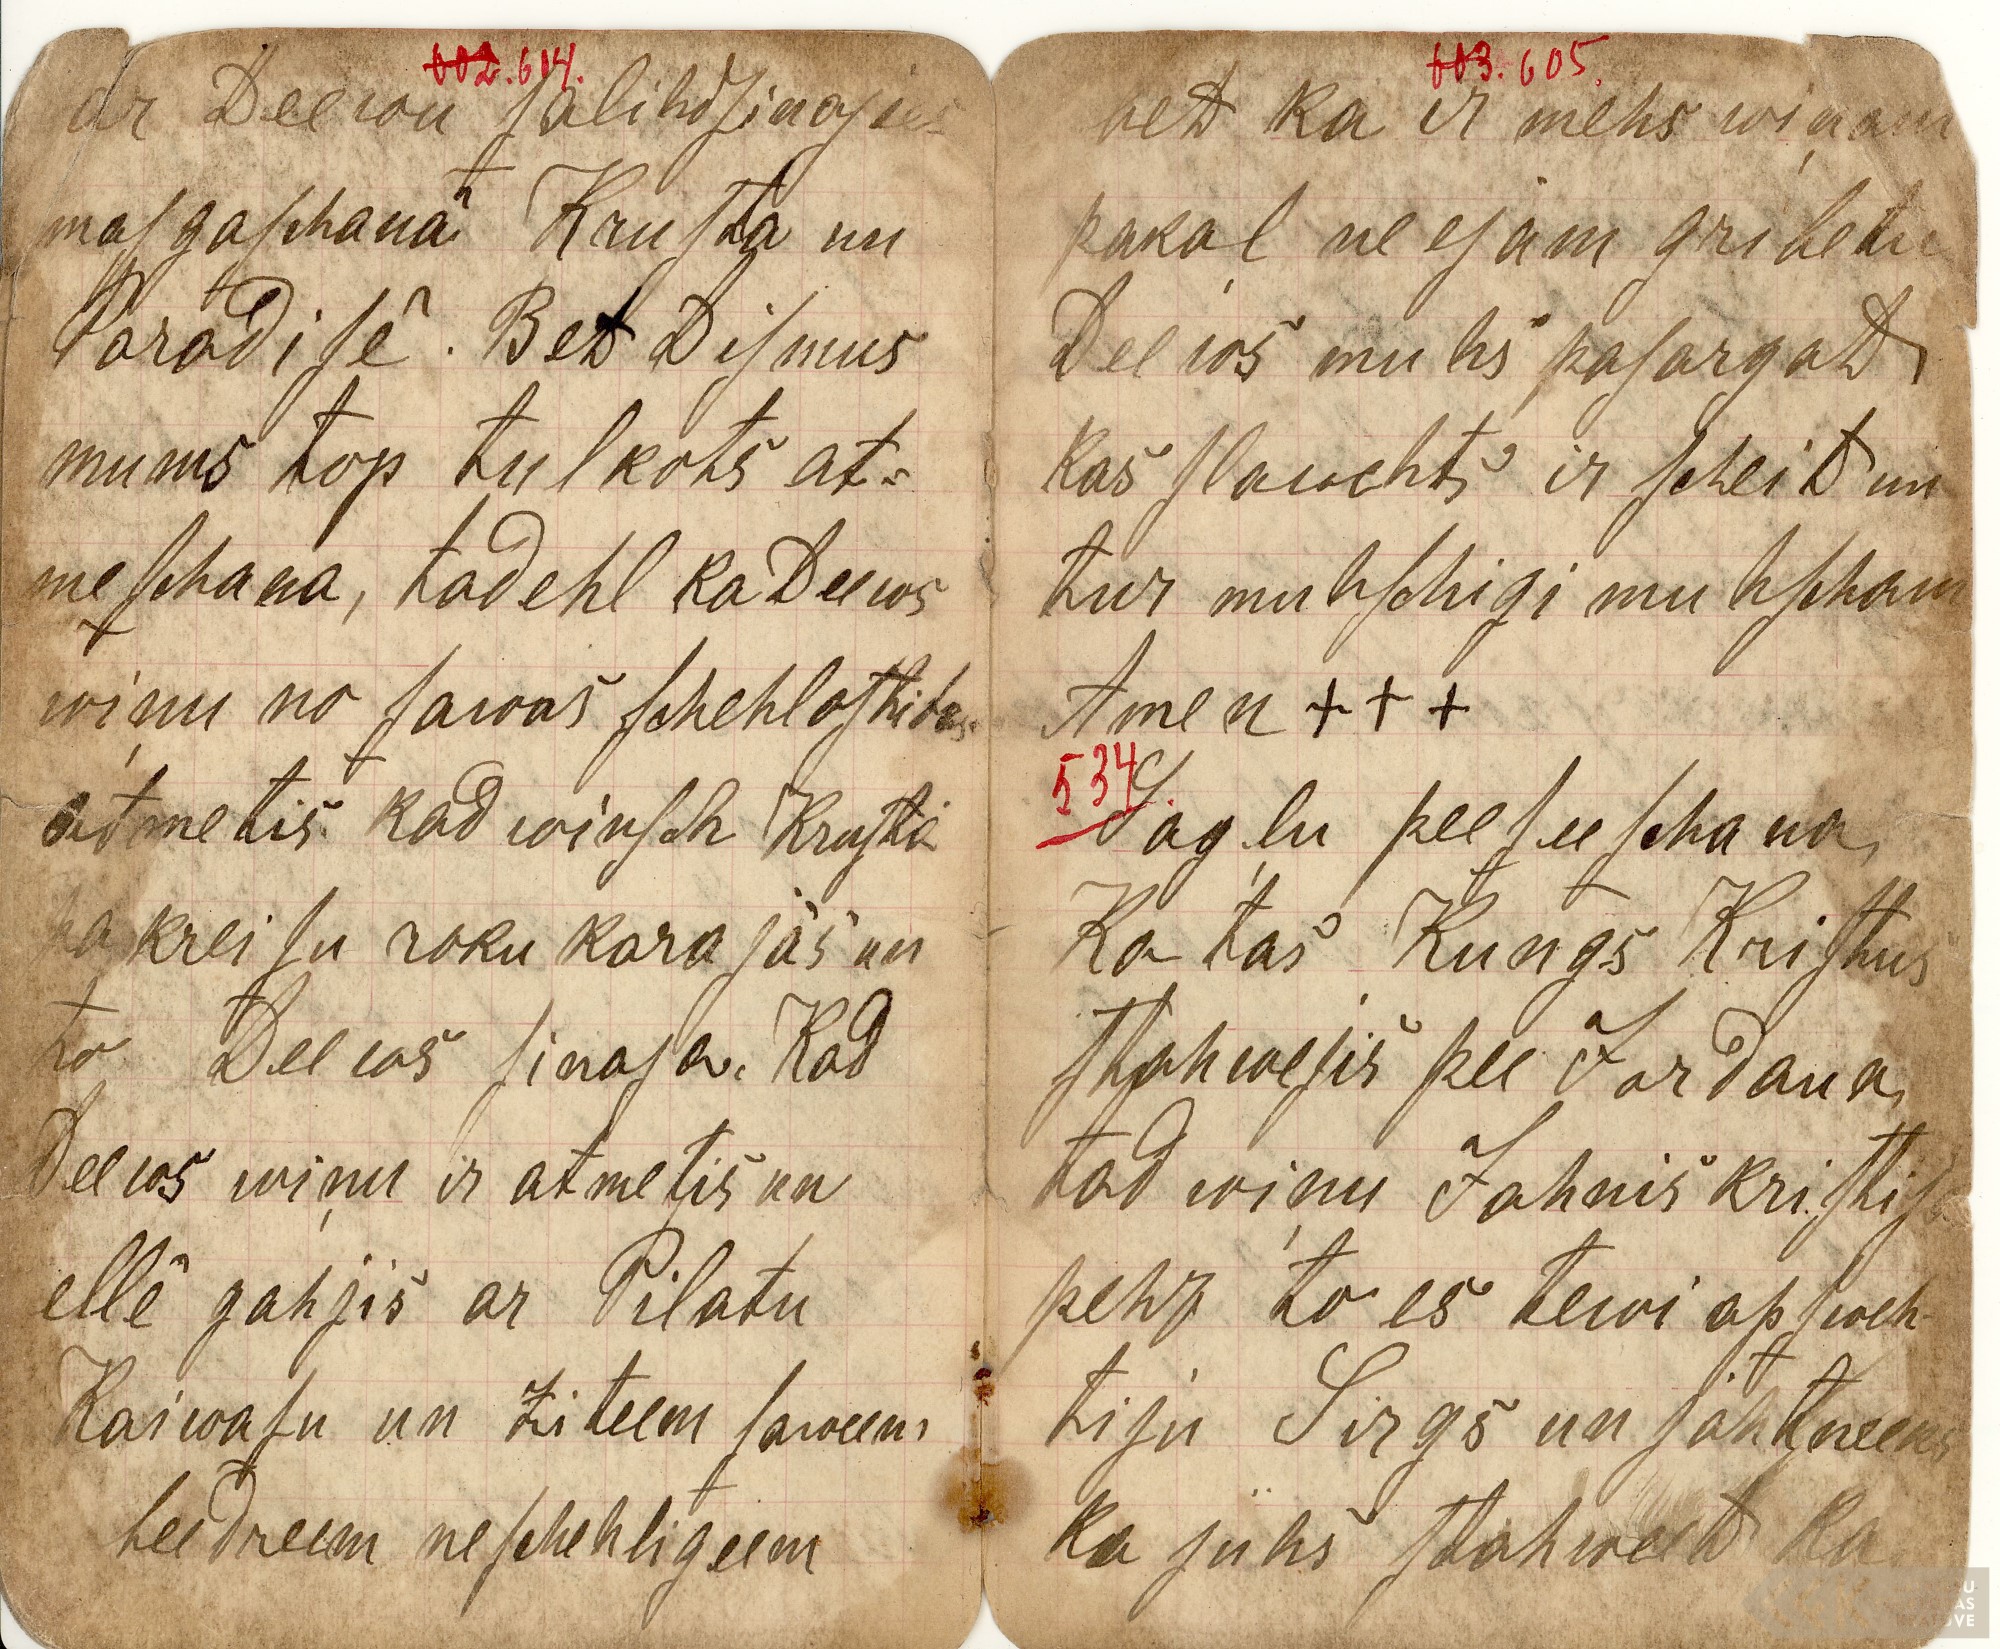 602. 604.
ar Deewu salihdsinajis
masgaschanâ Krusta un
Paradisê. Bet Dismus
mums top tulkots at-
meschana, tadehl ka Deews
wiņu no sawas schehlastibas
atmetis kad winsch Krusta
pa kreisu roku karajās un
to Deews sinaja. Kad
Deews wiņu ir atmetis un
ellê gahjis ar Pilatu
Kaiwasu un ziteem saweem
beedreem neschehligeem
603. 605.
bet ka ir mehs wiņam
pakaļ ne ejam gribetu
Deews muhs pasargat,
kas slawehts ir scheit un
tur muhschigi muhscham
Amen + + +
534.
Sagļu peeseeschana,
Ka tas Kungs Kristus
stahwejis pee Jordana,
tad wiņu Jahnis kristija
pehz to es tewi apsweh-
tiju Sirgs un jahtneeks
ka juhs stahweet ka